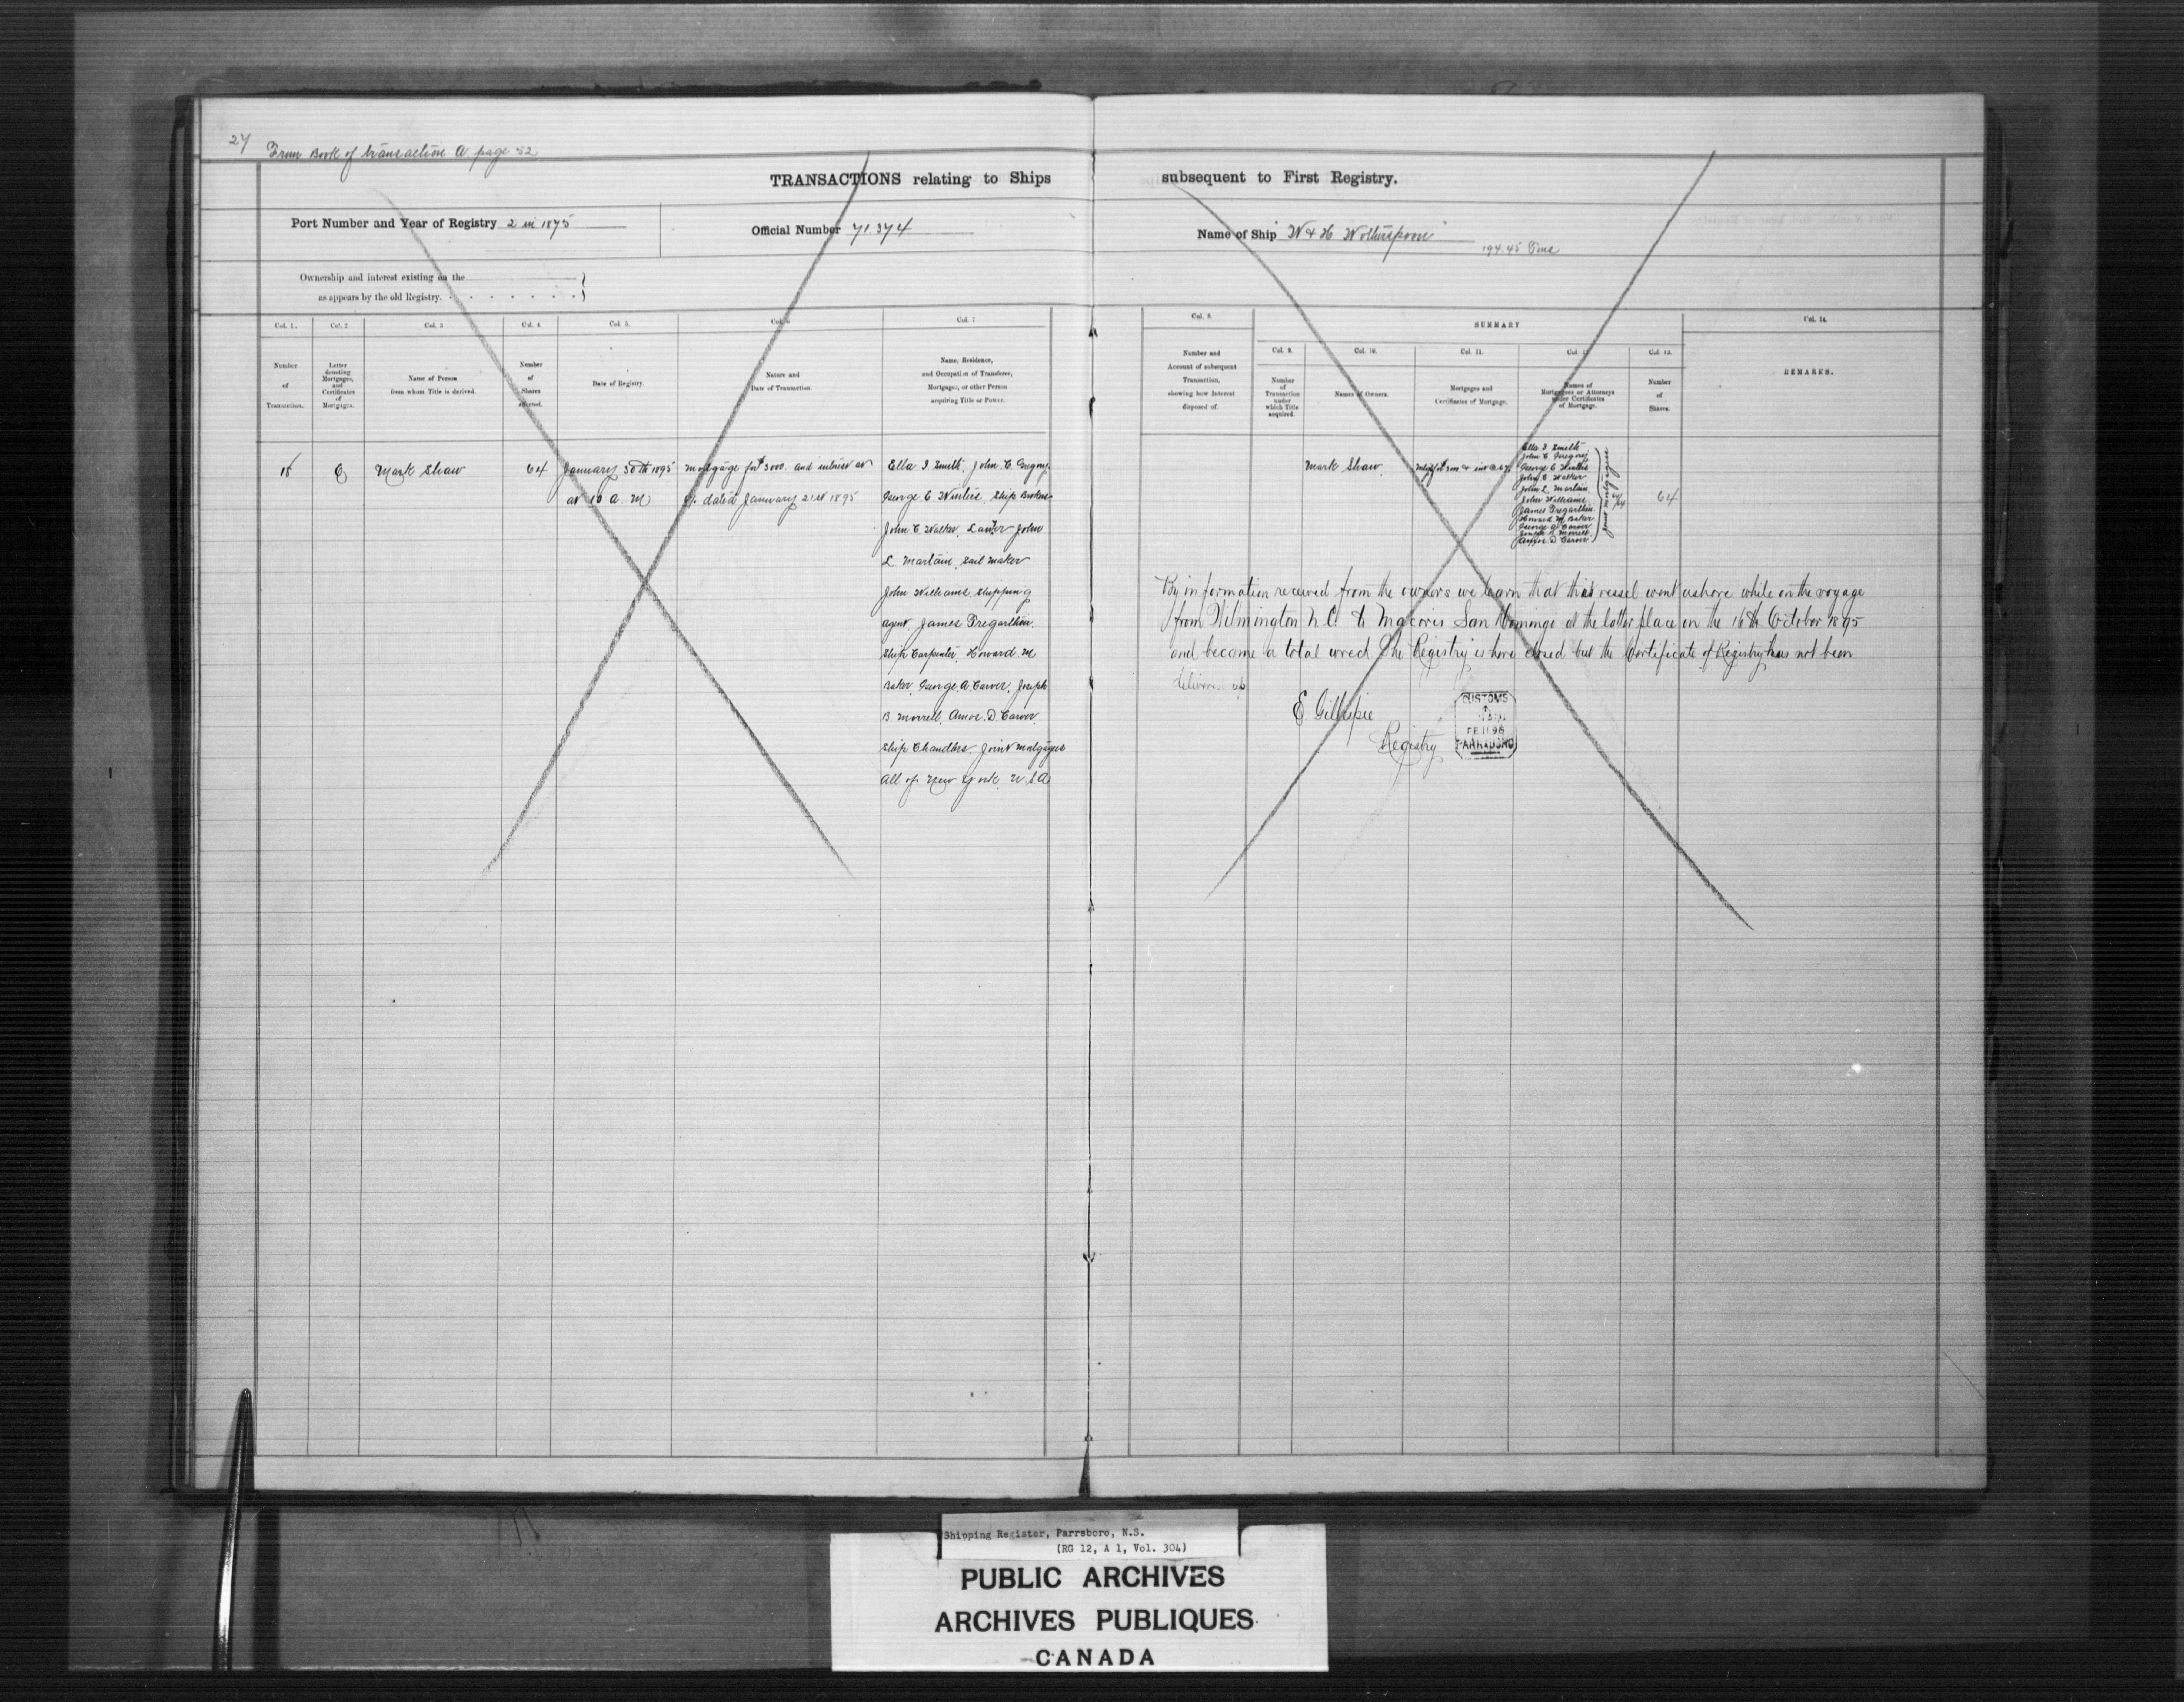 27
From Book of transaction A page 52
TRANSACTIONS relating to Ships subsequent to First Registry.
Port Number and Year of Registry 2 in 1875
Official Number 71.374
Name of Ship W & H Wotherspoon
194.45 Tons
Ownership and interest existing on the
as appears by the old Registry.
Col. 1.
Number
of
Transaction.
Col. 2
Letter
denoting
Mortgages,
and
Certificates
of
Mortgages.
Col. 3
Name of Person
from whom Title is derived.
Col. 4.
Number
of
Shares
affected.
Col. 5.
Date of Registry.
Col. 6
Nature and
Date of Transaction.
Col. 7
Name, Residence,
and Occupation of Transferee,
Mortgagee, or other Person
acquiring Title or Power.
Col. 8.
Number and
Account of subsequent
Transaction,
shewing how Interest
disposed of.
SUMMARY
Col. 9.
Number
of
Transaction
under
which Title
acquired.
Col. 10.
Names of Owners.
Col. 11.
Mortgages and
Certificates of Mortgage.
Col. 12
Names of
Mortgagees or Attorneys
under Certificates
of Mortgage.
Col. 13.
Number
of
Shares.
Col. 14.
REMARKS.
Mark Shaw
64
January 30th 1895
at 10 a. M
Mortgage for $3000. and interest at
6% dated January 21st 1895
Ella I Smith, John C. Gregory
George E Winters, Ship Brokers
John C Walker, John
L Martain, Sail maker
John Williams, Shipping
agent James Tregarthen.
Ship Carpenter, Howard. M
Baker, George. A Carver, Joseph
B. Morrell, Amos. D. Carver.
Ship Chandlers. Joint Mortgagees
all of New York. U. S. A
Mark Shaw.
Ella I Smith
John C Gregory
George E Winters
John C Walker
John L Martain
John Williams
James Tregarthen
Howard M. Baker
George A Carver
Joseph B Morrell
Amos D Carver
Joint Mortgagees
64
By information received from the owners we learn that this vessel went ashore while on the voyage
from Wilmington N. C. to Macoris San Domingo at the latter place on the 16th October 1895
and became a total wreck The Registry is here closed but the Certificate of Registry has not been
delivered up
E Gillespie
Registry
CUSTOMS
FE 11 96
PARRSBORO
Shipping Register, Parrsboro, N.S.
(RG 12, A 1, Vol. 304)
PUBLIC ARCHIVES
ARCHIVES PUBLIQUES
CANADA